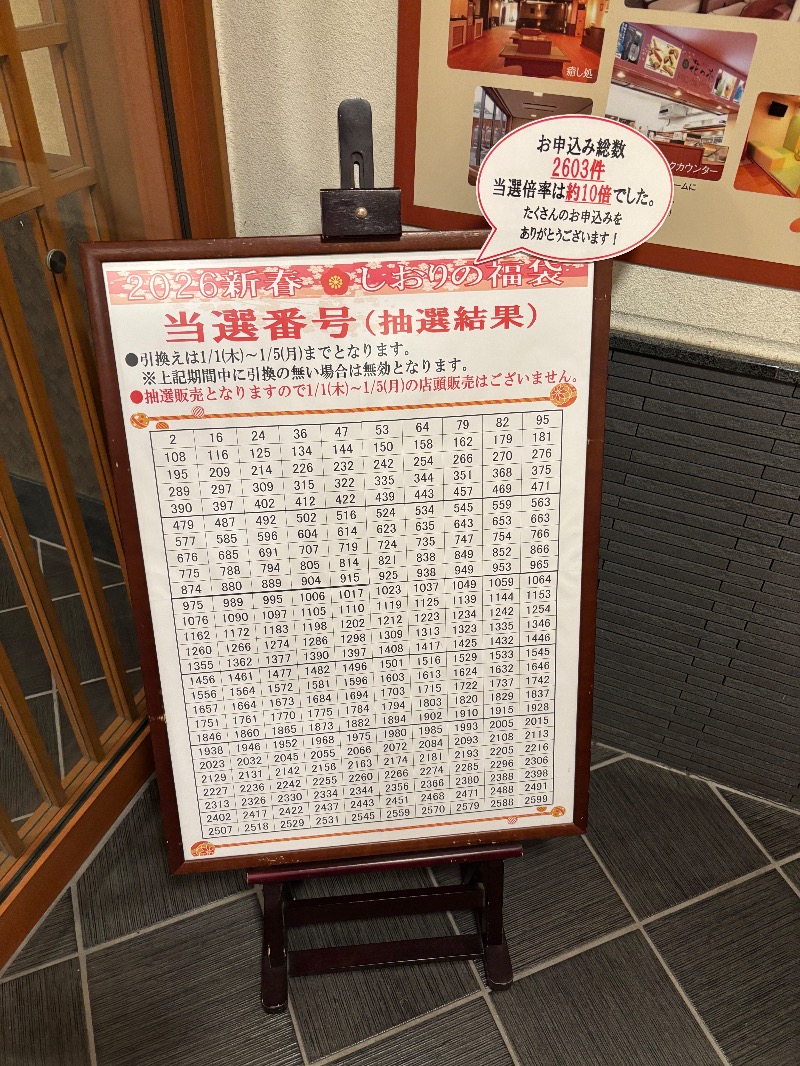 癒し処
クカウンター
ームに
お申込み総数
2603件
当選倍率は約10倍でした。
たくさんのお申込みを
ありがとうございます！
2026新春 しおりの福袋
当選番号(抽選結果)
●引換えは1/1(木)～1/5(月)までとなります。
※上記期間中に引換の無い場合は無効となります。
●抽選販売となりますので1/1(木)～1/5(月)の店頭販売はございません。
2 16 24 36 47 53 64 79 82 95
108 116 125 134 144 150 158 162 179 181
195 209 214 226 232 242 254 266 270 276
289 297 309 315 322 335 344 351 368 375
390 397 402 412 422 439 443 457 469 471
479 487 492 502 516 524 534 545 559 563
577 585 596 604 614 623 635 643 653 663
676 685 691 707 719 724 735 747 754 766
775 788 794 805 814 821 838 849 852 866
874 880 889 904 915 925 938 949 953 965
975 989 995 1006 1017 1023 1037 1049 1059 1064
1076 1090 1097 1105 1110 1119 1125 1139 1144 1153
1162 1172 1183 1198 1202 1212 1223 1234 1242 1254
1260 1266 1274 1286 1298 1309 1313 1323 1335 1346
1355 1362 1377 1390 1397 1408 1417 1425 1432 1446
1456 1461 1477 1482 1496 1501 1516 1529 1533 1545
1556 1564 1572 1581 1596 1603 1613 1624 1632 1646
1657 1664 1673 1684 1694 1703 1715 1722 1737 1742
1751 1761 1770 1775 1784 1794 1803 1820 1829 1837
1846 1860 1865 1873 1882 1894 1902 1910 1915 1928
1938 1946 1952 1968 1975 1980 1985 1993 2005 2015
2023 2032 2045 2055 2066 2072 2084 2093 2108 2113
2129 2131 2142 2156 2163 2174 2181 2193 2205 2216
2227 2236 2242 2255 2260 2266 2274 2285 2296 2306
2313 2326 2330 2334 2344 2356 2366 2380 2388 2398
2402 2417 2422 2437 2443 2451 2468 2471 2488 2491
2507 2518 2529 2531 2545 2559 2570 2579 2588 2599